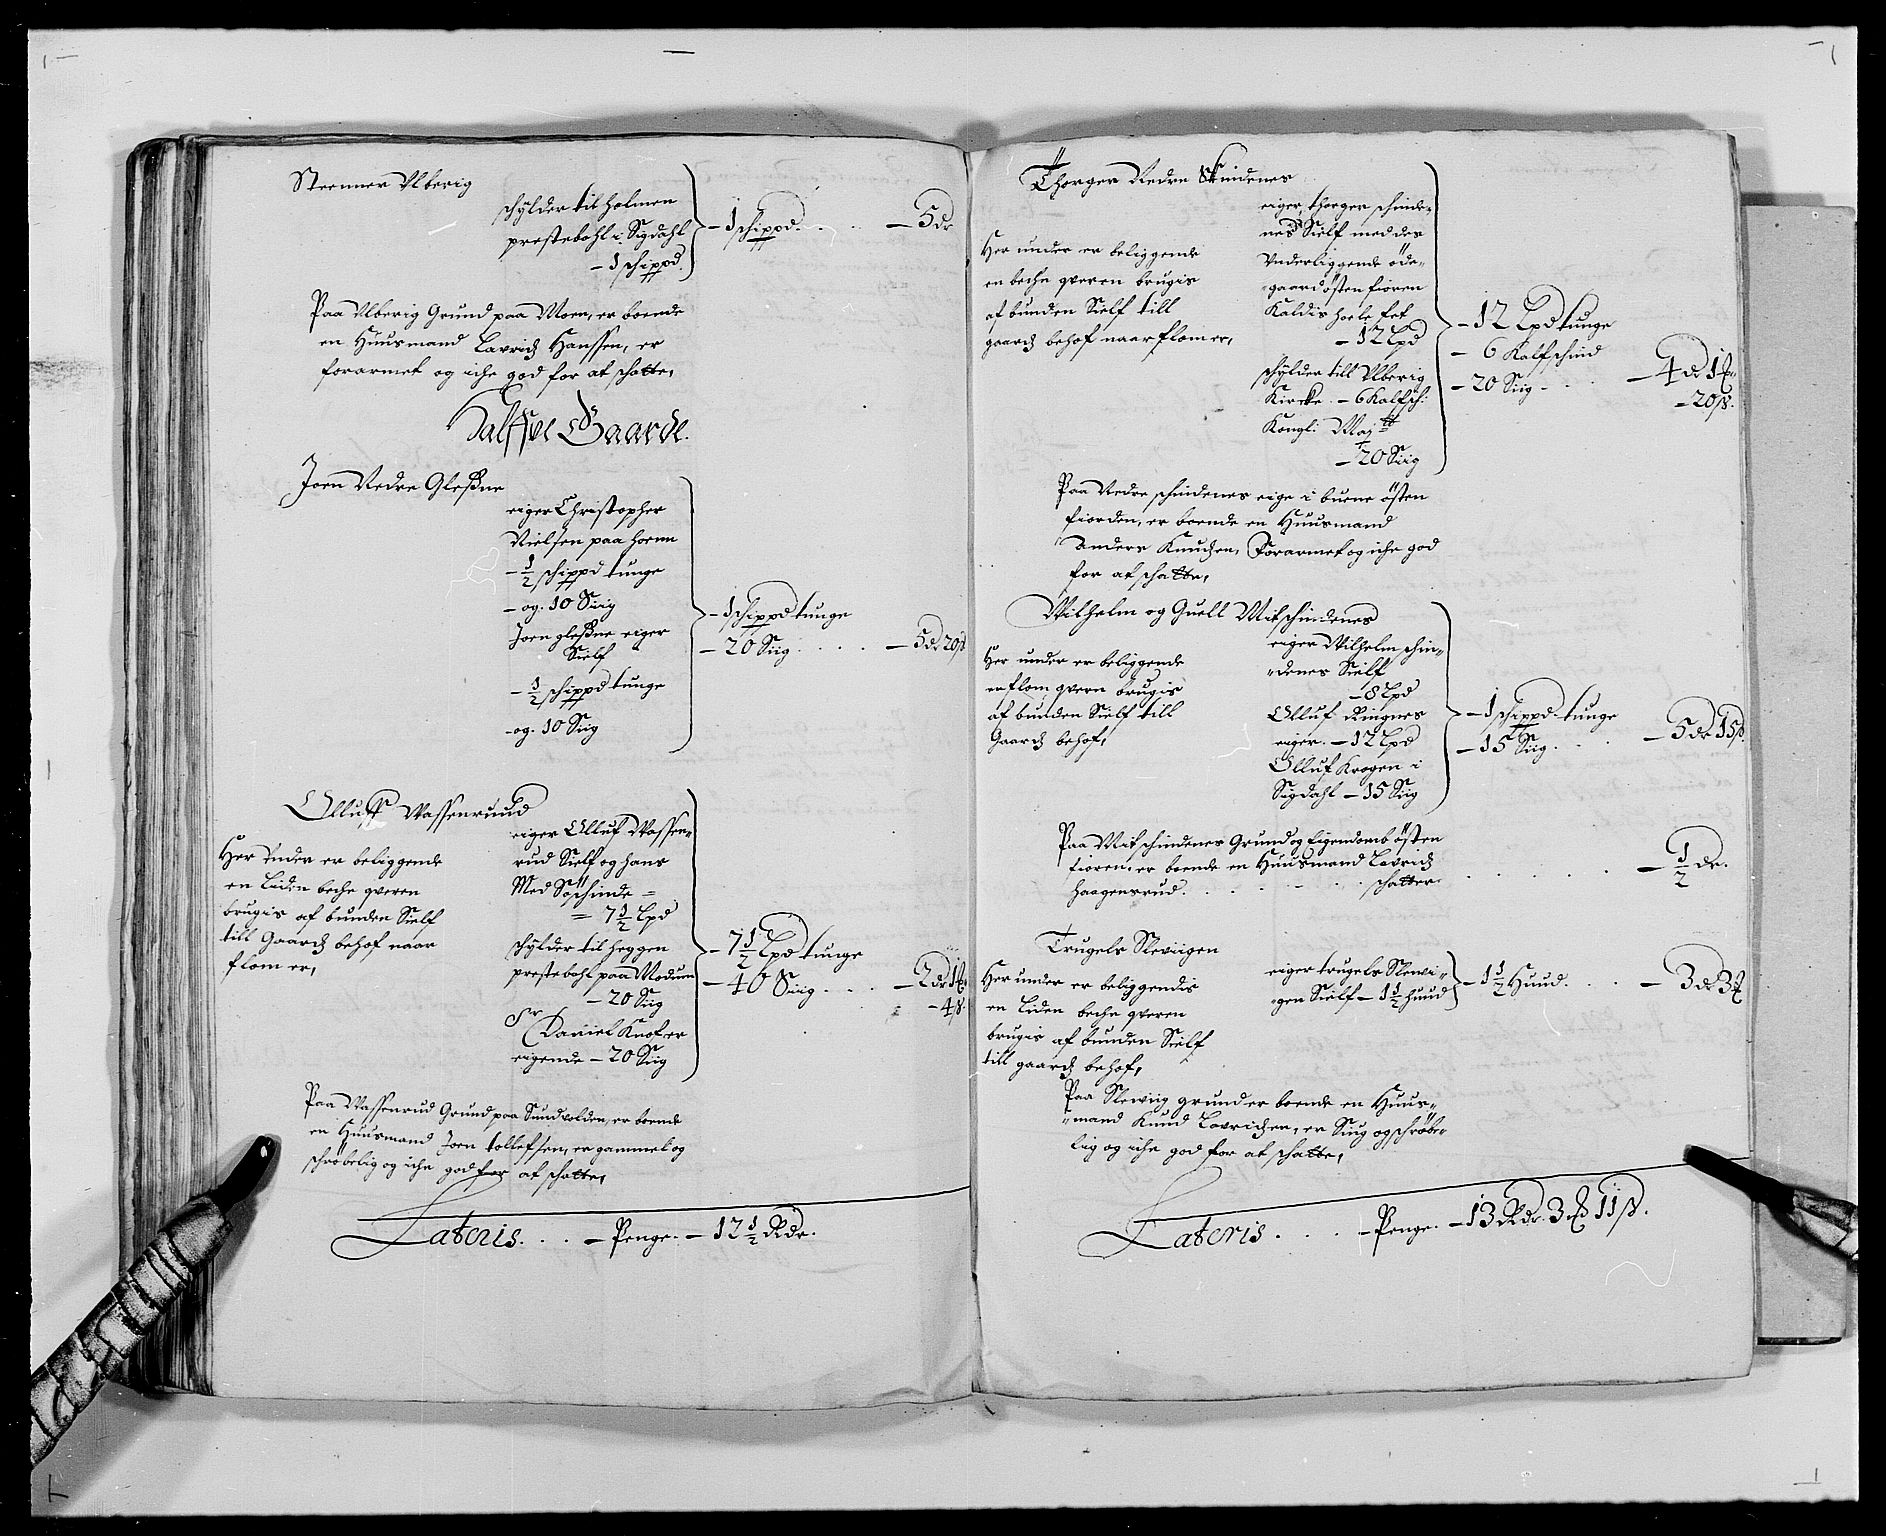 Steenner Ulberig
schylder til holmen
prestebohl i Sigdahl
- 1 schippd.
- 1 schippd. . . . - 5 dr
Paa Ulberig Grund paa Moen, er boende
en Huusmand Lavrids Hanssen, er
forarmet og iche god for at schatte,
Halffve Gaarde.
Joen Nedre Gleßne
eiger Christopher
Nielsen paa hoenn
- 1/2 schippd tunge
- og. 10 Siig
Joen gleßne eiger
Sielf
- 1/2 schippd tunge
- og. 10 Siig
- 1 schippd tunge
- 20 Siig . . . . - 5 dr 20 ß
Olluff Wassenrund
Her under er beliggende
en liden beche qvern
brugis af bunden Sielf
till Gaards behof naar
flom er,
eiger Olluf Wassen-
rud Sielf og hans
Med Söschinde =
= 7 1/2 Lpd
schylder til heggen
prestebohl paa Modum
- 20 Siig
Sr
Daniel Knof er
eigende - 20 Siig
- 7 1/2 Lpd tunge
- 40 Siig . . . - 2 dr 1 ℔
- 4 ß.
Paa Wassenrud Grund paa Sundvolden, er boende
en Huusmand Joen tollefsen, er gammel og
schröbelig og iche god for at schatte,
Lateris. . . . - Penge. - 12 1/2 Rdr.
Thorger Nedre Skindenes
Her under er beliggende
en beche qvern brugis
af bunden Sielf till
gaards behof naar flom er,
eiger, thorger schinde-
nes Sielf med des
underliggende öde-
gaard östen fioren
Kaldis hoele fet
- 12 Lpd
schylder till Ulberig
Kircke. - 6 Kalfsch:
Kongl: Maj tt
- 20 Siig
- 12 Lpd tunge
- 6 Kalfschind
- 20 Siig - . . . - 4 dr 1 ℔
- 20 ß.
Paa Nedre schindenes eige i buene östen
fiorden, er boende en Huusmand
Anders Knudsen, Forarmet og iche god
for at schatte,
Wilhelm og Guell Mitschindenes
Her under er beliggende
en flom qvern brugis
af bunden Sielf till
Gaards behof,
eiger Wilhelm schin-
denes Sielf
- 8 Lpd
Olluf Ringnes
eiger. - 12 Lpd
Olluf Krogen i
Sigdahl - 15 Siig
- 1 schippd tunge
- 15 Siig. . . . - 5 dr 15 ß.
Paa Mitschindenes Grund og Eigendomb östen
fioren, er boende en Huusmand Lavrids
haagensrud. . . . . schatter. . . . . - 1/2 dr.
Trugels Slevigen
Her under er beliggendis
en liden beche qvern
brugis af bunden Sielf
till gaards behof,
eiger trugels Slewi-
gen Sielf - 1 1/2 huud
- 1 1/2 Huud. . . . - 3 dr 3 ℔
Paa Slewiig grund er boende en Huus-
mand Knud Lavridsen, er Siug og schröbe-
lig og iche god for at schatte,
Lateris . . . - Penge. - 13 Rdr. 3 ℔ 11 ß.